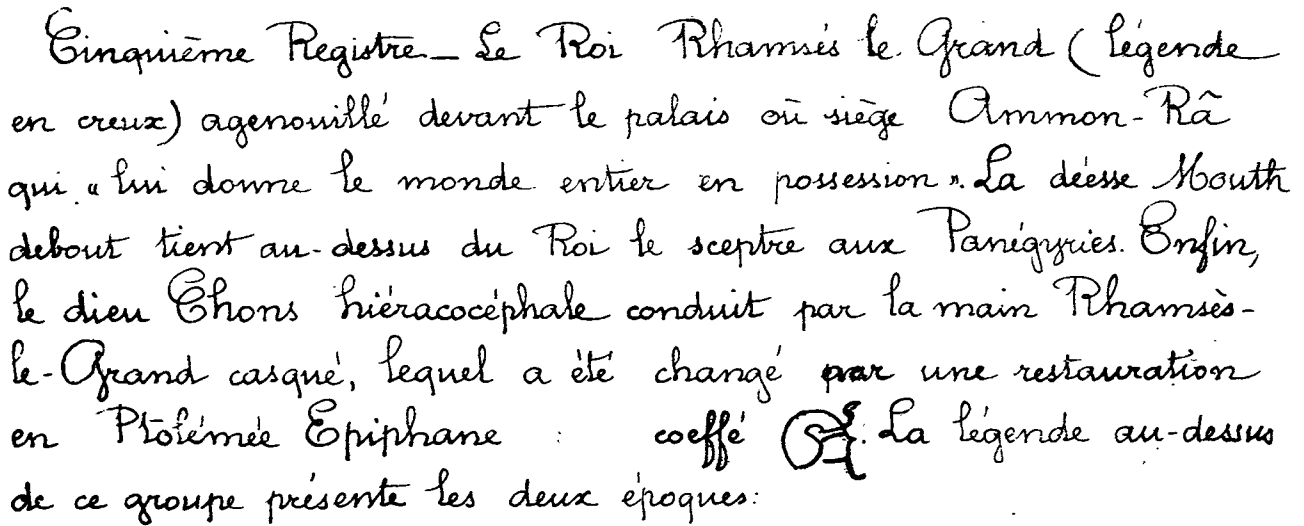 Cinquième Registre_ Le Roi Rhamsés le Grand (légende
en creux) agenouillé devant le palais où siège Ammon-Râ
qui « lui donne le monde entier en possession ». La déesse Mouth
debout tient au-dessus du Roi le sceptre aux Panégyries. Enfin,
le dieu Chons hiéracocéphale conduit par la main Rhamsès-
le-Grand casqué, lequel a été changé par une restauration
en Ptolémée Epiphane : coeffé . La légende au-dessus
de ce groupe présente les deux époques: